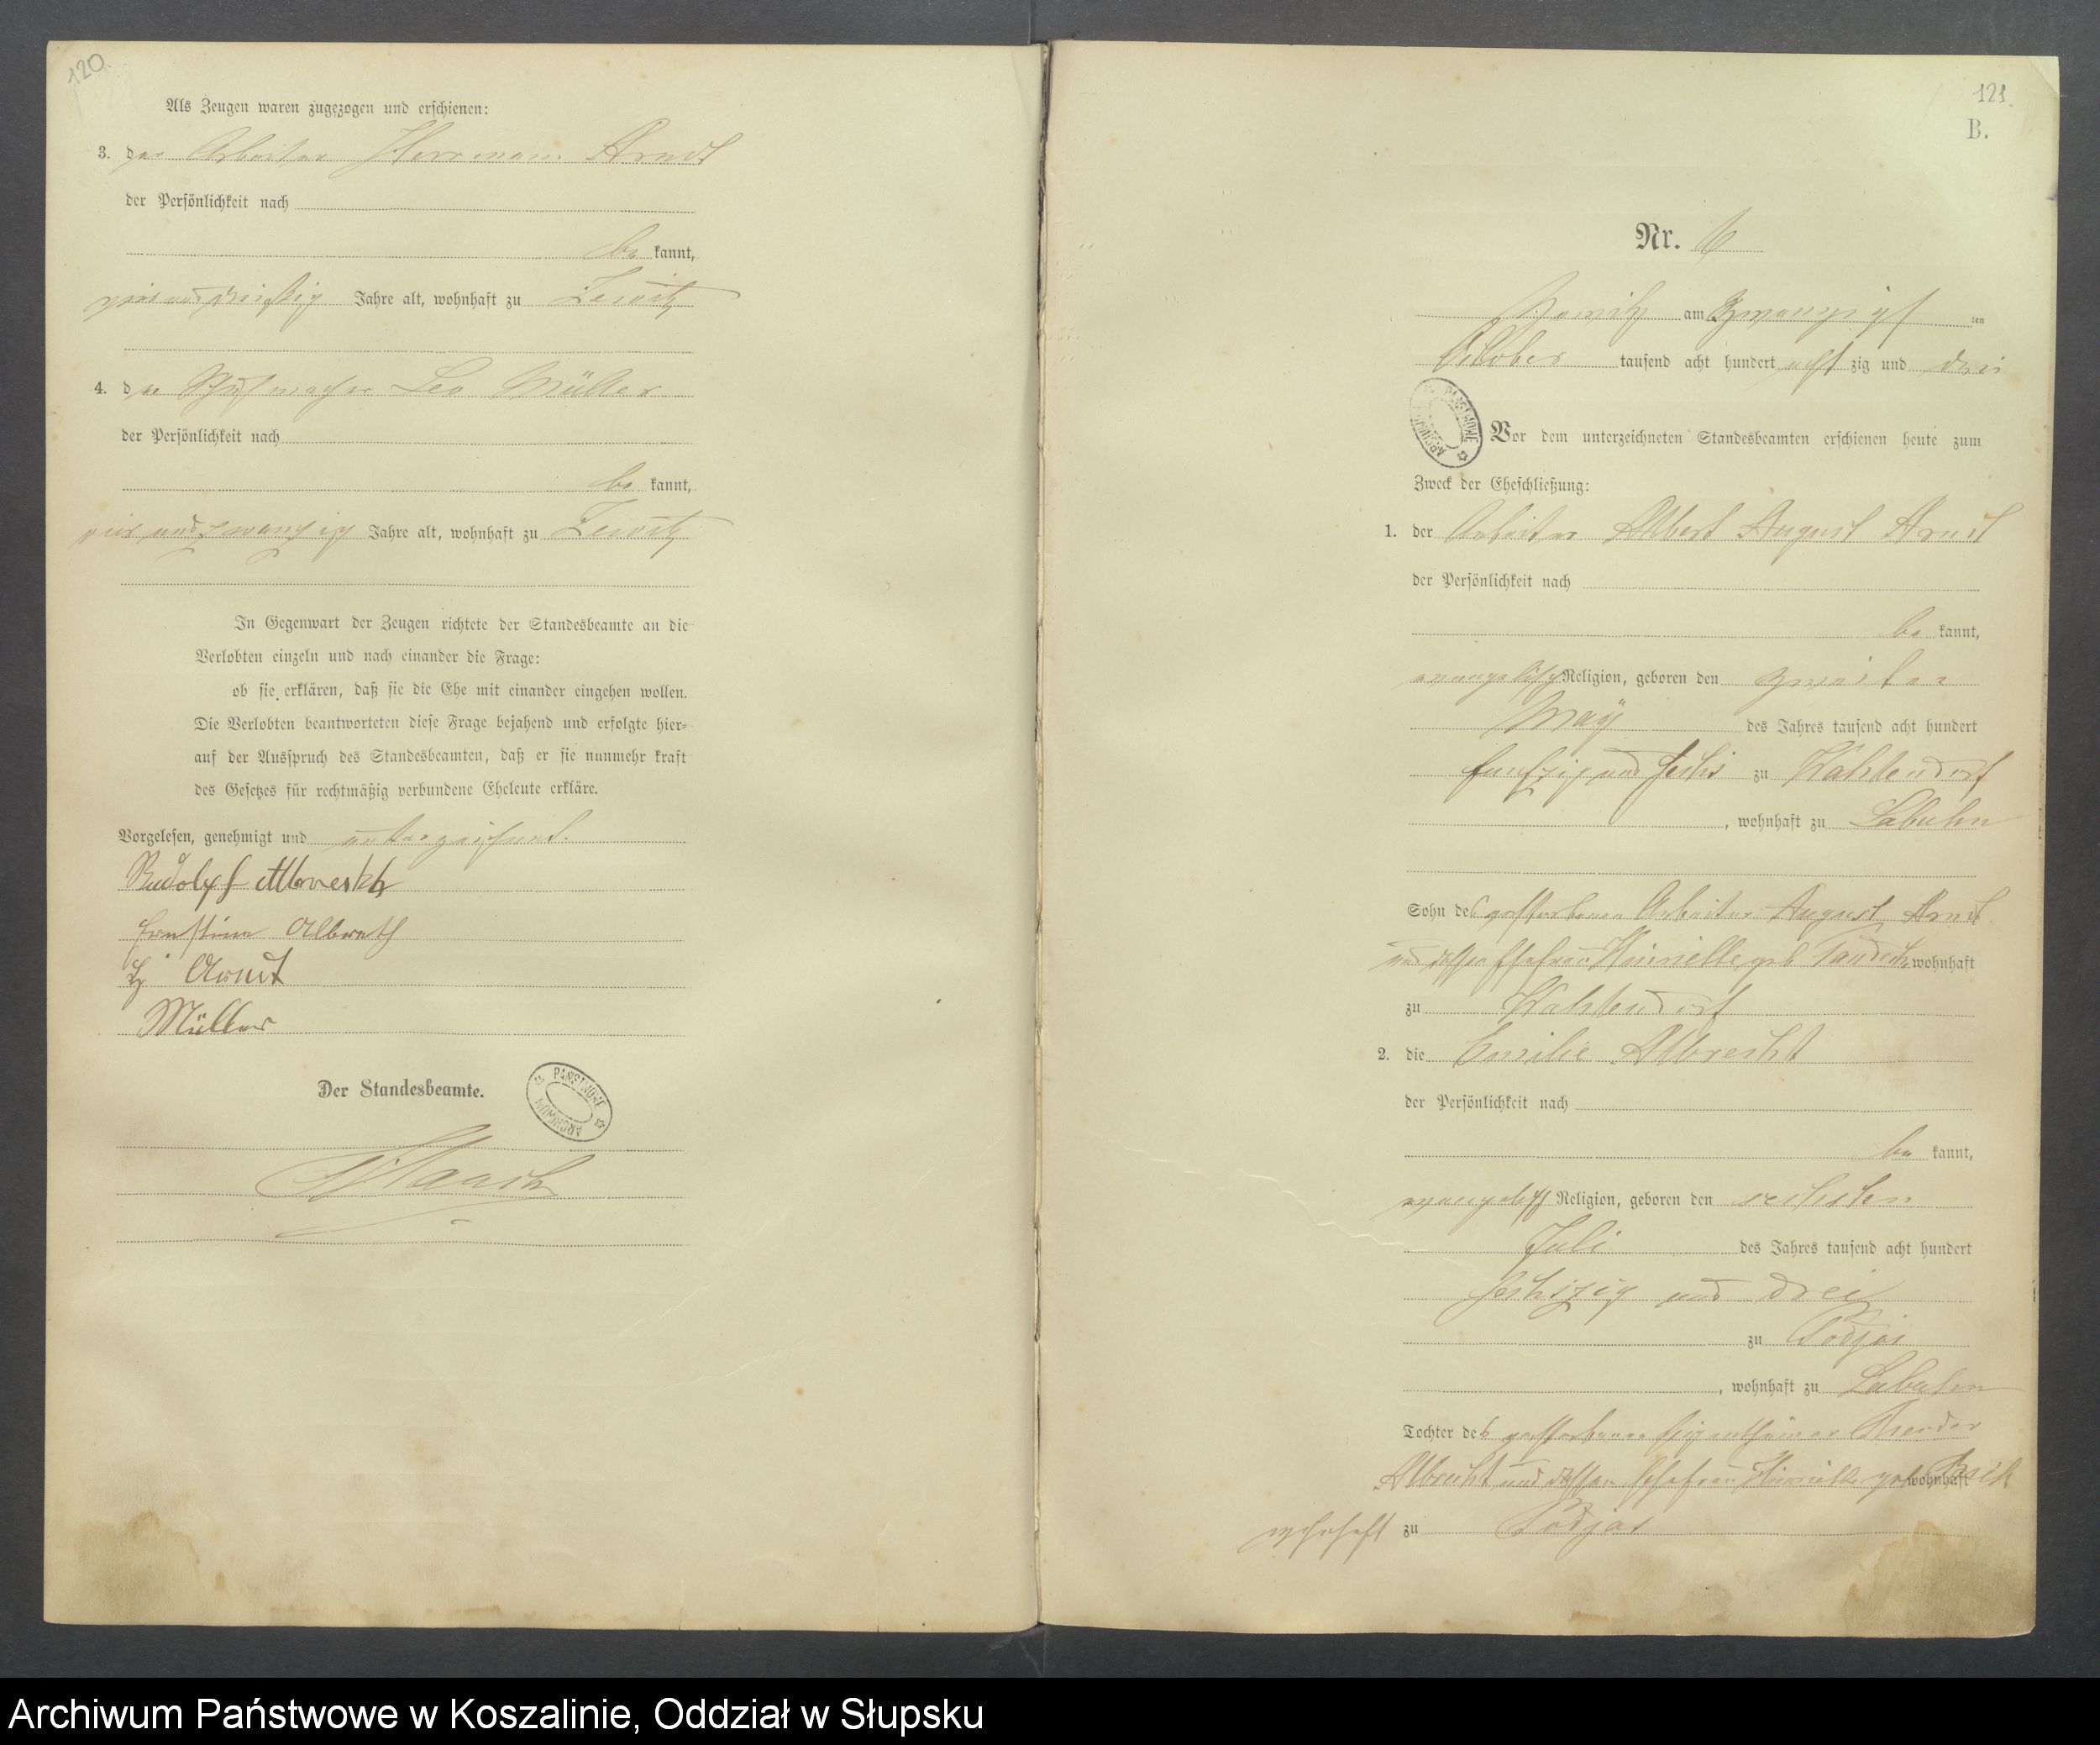 120.
Als Zeugen waren zugezogen und erschienen:
3. der Arbeiter Herrmann Arndt
der Persönlichkeit nach
be kannt,
Jahre alt, wohnhaft zu Zewitz
4. der Schuhmacher Leo Müller
der Persönlichkeit nach
be kannt,
vier und zwanzig Jahre alt, wohnhaft zu Zewitz
In Gegenwart der Zeugen richtete der Standesbeamte an die
Verlobten einzeln und nach einander die Frage:
ob sie erklären, daß sie die Ehe mit einander eingehen wollen.
Die Verlobten beantworteten diese Frage bejahend und erfolgte hier-
auf der Ausspruch des Standesbeamten, daß er sie nunmehr kraft
des Gesetzes für rechtmäßig verbundene Eheleute erkläre.
Vorgelesen, genehmigt und unterzeichnet.
Rudolf
Ernstine
Arndt
Müller
Der Standesbeamte.
PAŃSTWOWE ARCHIWUM
121.
B.
Nr. 6
Zewitz am Zwanzigst ten
October tausend acht hundert acht zig und drei
PAŃSTWOWE ARCHIWUM
Vor dem unterzeichneten Standesbeamten erschienen heute zum
Zweck der Eheschließung:
1. der Arbeiter Albert August Arndt
der Persönlichkeit nach
be kannt,
evangelischer Religion, geboren den zweiten
May des Jahres tausend acht hundert
funfzig und sechs zu Wahlendorf
, wohnhaft zu Labuhn
Sohn des verstorbenen Arbeiter August Arndt
und dessen Ehefrau geb wohnhaft
zu Wahlendorf
2. die Emilie Albrecht
der Persönlichkeit nach
be kannt,
evangelisch Religion, geboren den sechsten
Juli des Jahres tausend acht hundert
sechszig und drei
zu Podjas
, wohnhaft zu Labuhn
Tochter des verstorbenen Eigenthümer
Albrecht und dessen Ehefrau geb wohnhaft
wohnhaft zu Podjas
Archiwum Państwowe w Koszalinie, Oddział w Słupsku